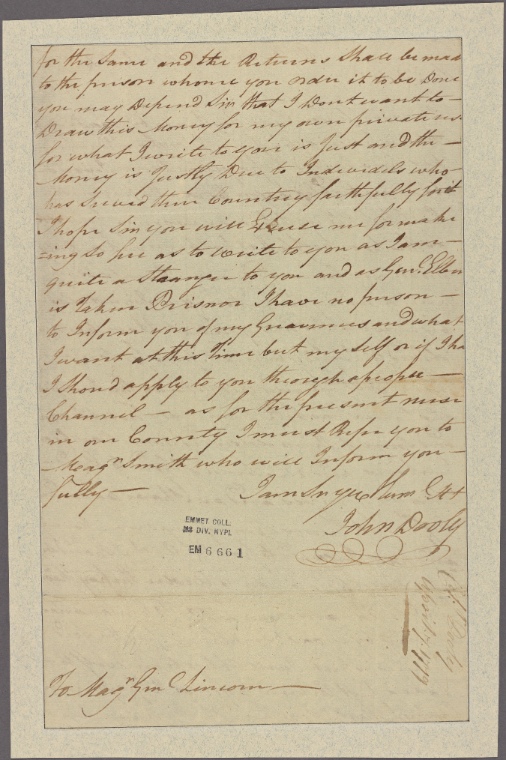 for the Same and the Returns Shall be mad
to the person whome you order it to be Done
you may Depend Sir that I Dont want to
Draw this Money for my own private us
for what I write to you is Just and the
Money is Justly Due to Indevidels who
has served their Countrey faithfully for it
I hope Sir you will Excuse me for make
=ing So free as to write to you as I am
quite a Stranger to you and as Genl Elber
is Taken Prisnor I have no person
to Inform you of my Greavances and what
I want at this Time but my Self or if I ha
I Shoud apply to you through a proper
Channel — as for the present
in our County I must Refer you to
Magr Smith who will Inform you
fully — I am Sir your Humr
John Dooly
EMMET COLL.
MS DIV. NYPL
EM 6661
To Magr Genl Lincorn